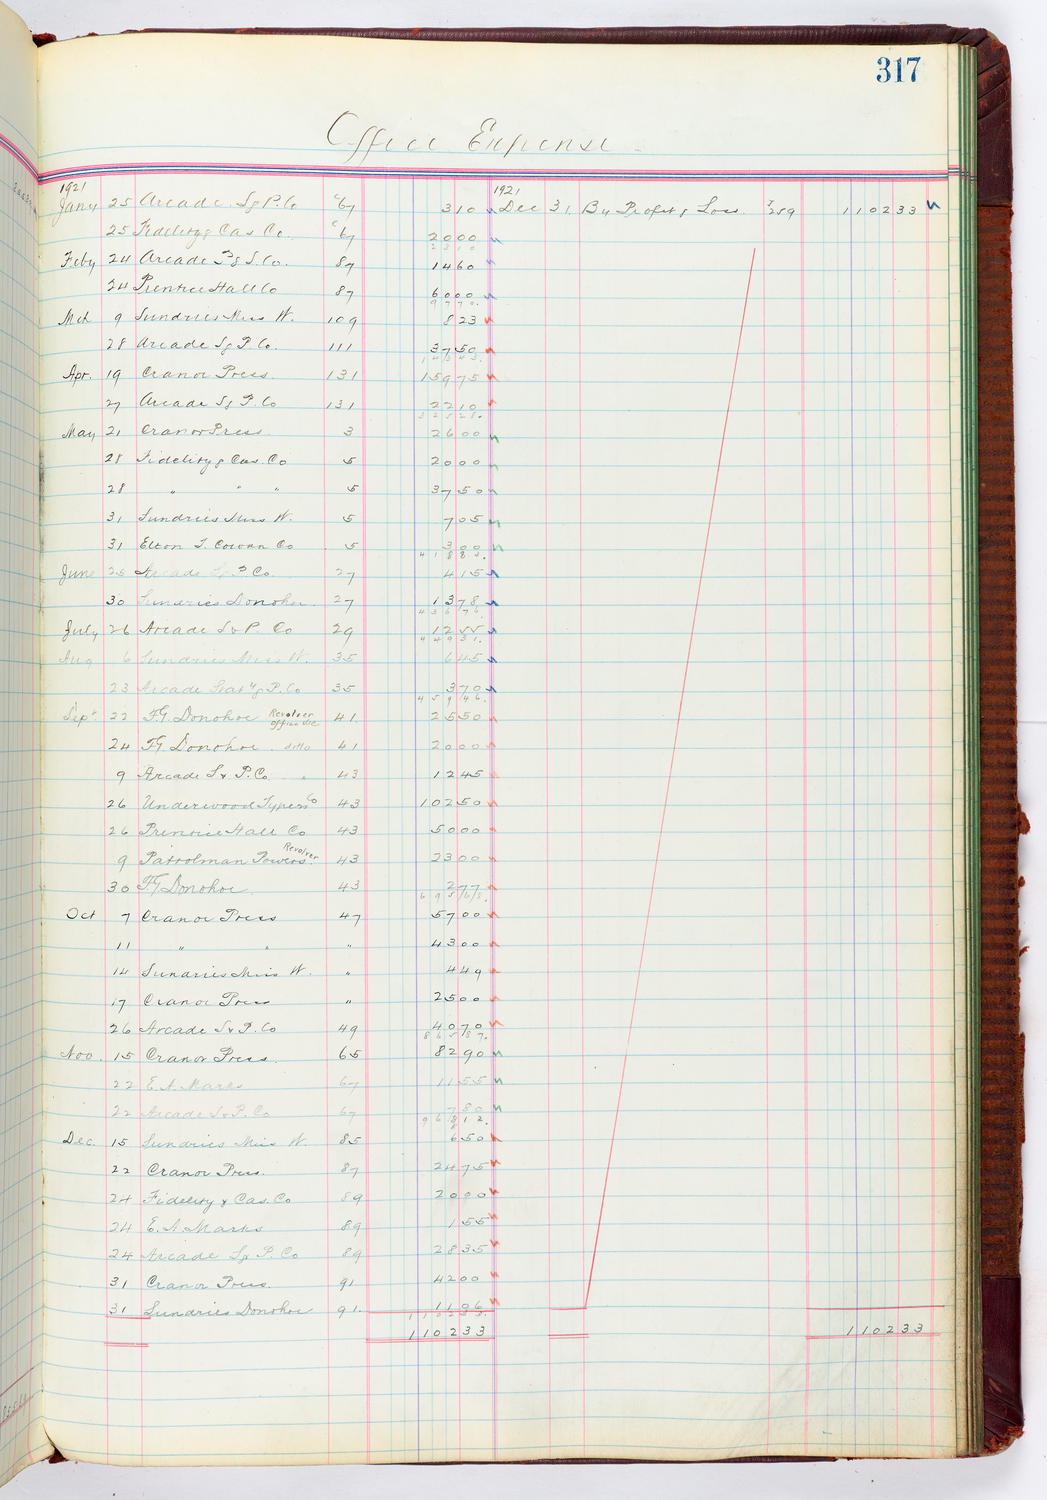 317
Office Expense
1921 1921
Jany 25 Arcade S & P. Co 67 310 Dec 31, By Profit & Loss 259 110233
25 Fidelity & Cas Co. 67 2000
2310
Feby 24 Arcade P & S. Co. 87 1460
24 Prentice Hall Co 87 6000
9770.
Mch 9 Sundries Miss W. 109 823
28 Arcade S & P Co. 111 3750
14343.
Apr. 19 Cranor Press. 131 15975
27 Arcade S & P. Co 131 2210
32528.
May 21 Cranor Press 3 2600
28 Fidelity & Cas. Co 5 2000
28 " " " 5 3750
31 Sundries Miss W. 5 705
31 Elton T. Cowan Co 5 300
41883.
June 25 Arcade S & P Co. 27 415
30 Sundries Donohoe. 27 1378
43676.
July 26 Arcade S & P. Co 29 1255
44931.
Aug 6 Sundries Miss W. 35 645
23 Arcade Stat'y & P. Co 35 370
45946.
Sept 22 F.G. Donohoe Revolver office use 41. 2550
24 FG Donohoe ditto 41 2000
9 Arcade S & P. Co. " 43 1245
26 Underwood Typewr Co 43 10250
26 Prentice Hall Co 43 5000
9 Patrolman Powers. Revolver 43 2300
30 FG Donohoe. 43 277
69568.
Oct 7 Cranor Press 47 5700
11 " " " 4300
14 Sundries Miss W. " 449
17 Cranor Press " 2500
26 Arcade S & P. Co 49 4070
86587.
Nov. 15 Cranor Press. 65 8290
22 E A Marks 67 1155
22 Arcade S & P. Co 67 780
96812.
Dec. 15 Sundries Miss W. 85 650
22 Cranor Press. 87 2475
24 Fidelity & Cas. Co 89 2000
24 E. A Marks 89 155
24 Arcade S & P. Co 89 2835
31 Cranor Press. 91 4200
31 Sundries Donohoe 91. 1106
110233.
110233 110233